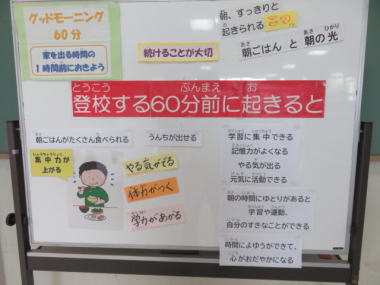 グッドモーニング
60分
家を出る時間の
1時間前におきよう
続けることが大切
朝、すっきりと
起きられる
朝ごはん と 朝の光
登校する60分前に起きると
朝ごはんがたくさん食べられる
うんちが出せる
学習に集中できる
記憶力がよくなる
やる気が出る
元気に活動できる
集中力が
上がる
やる気がでる
体力がつく
学力があがる
朝の時間にゆとりがあると
学習や運動、
自分のすきなことができる
時間によゆうができて、
心がおだやかになる